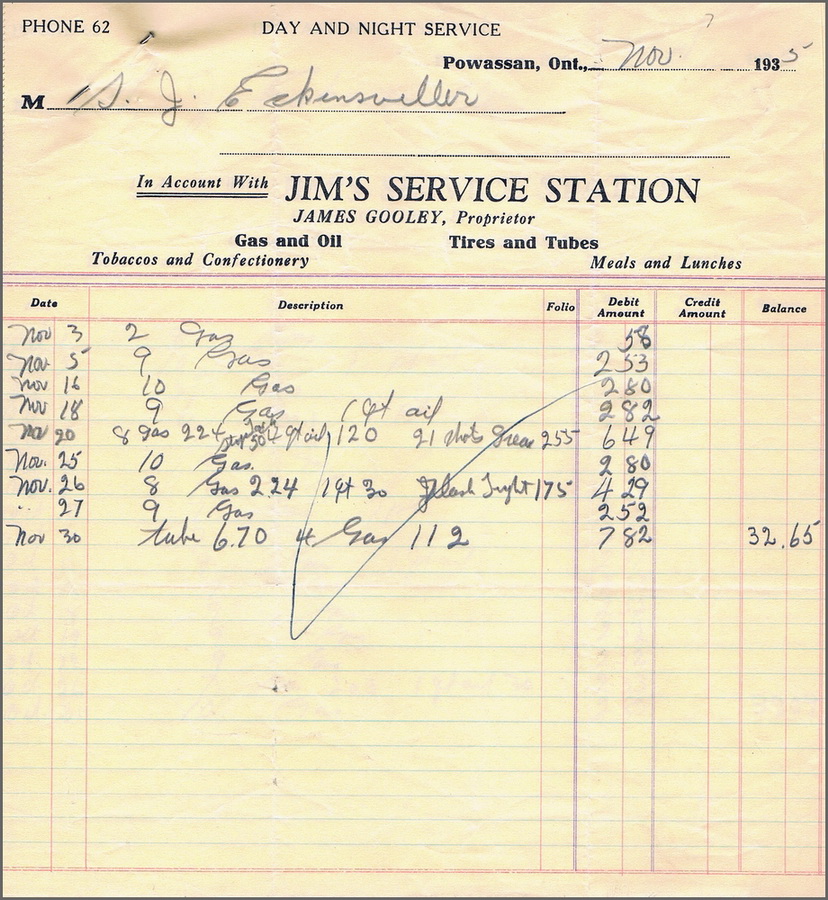 PHONE 62 DAY AND NIGHT SERVICE
Powassan, Ont., Nov. 1935
M S. J. Eckensviller
In Account With JIM'S SERVICE STATION
JAMES GOOLEY, Proprietor
Gas and Oil Tires and Tubes
Tobaccos and Confectionery Meals and Lunches
Date Description Folio Debit Amount Credit Amount Balance
Nov 3 2 Gas 58
Nov 5 9 Gas 2 53
Nov 16 10 Gas 2 80
Nov 18 9 Gas 1 qt oil 2 82
Nov 20 8 Gas 224 qt oil 120 21 shots Grease 255 6 49
Nov. 25 10 Gas. 2 80
Nov. 26 8 Gas 2.24 1 qt 30 Flash Light 175 4 29
" 27 9 Gas 2 52
Nov 30 tube 6.70 4 Gas 112 7 82 32.65